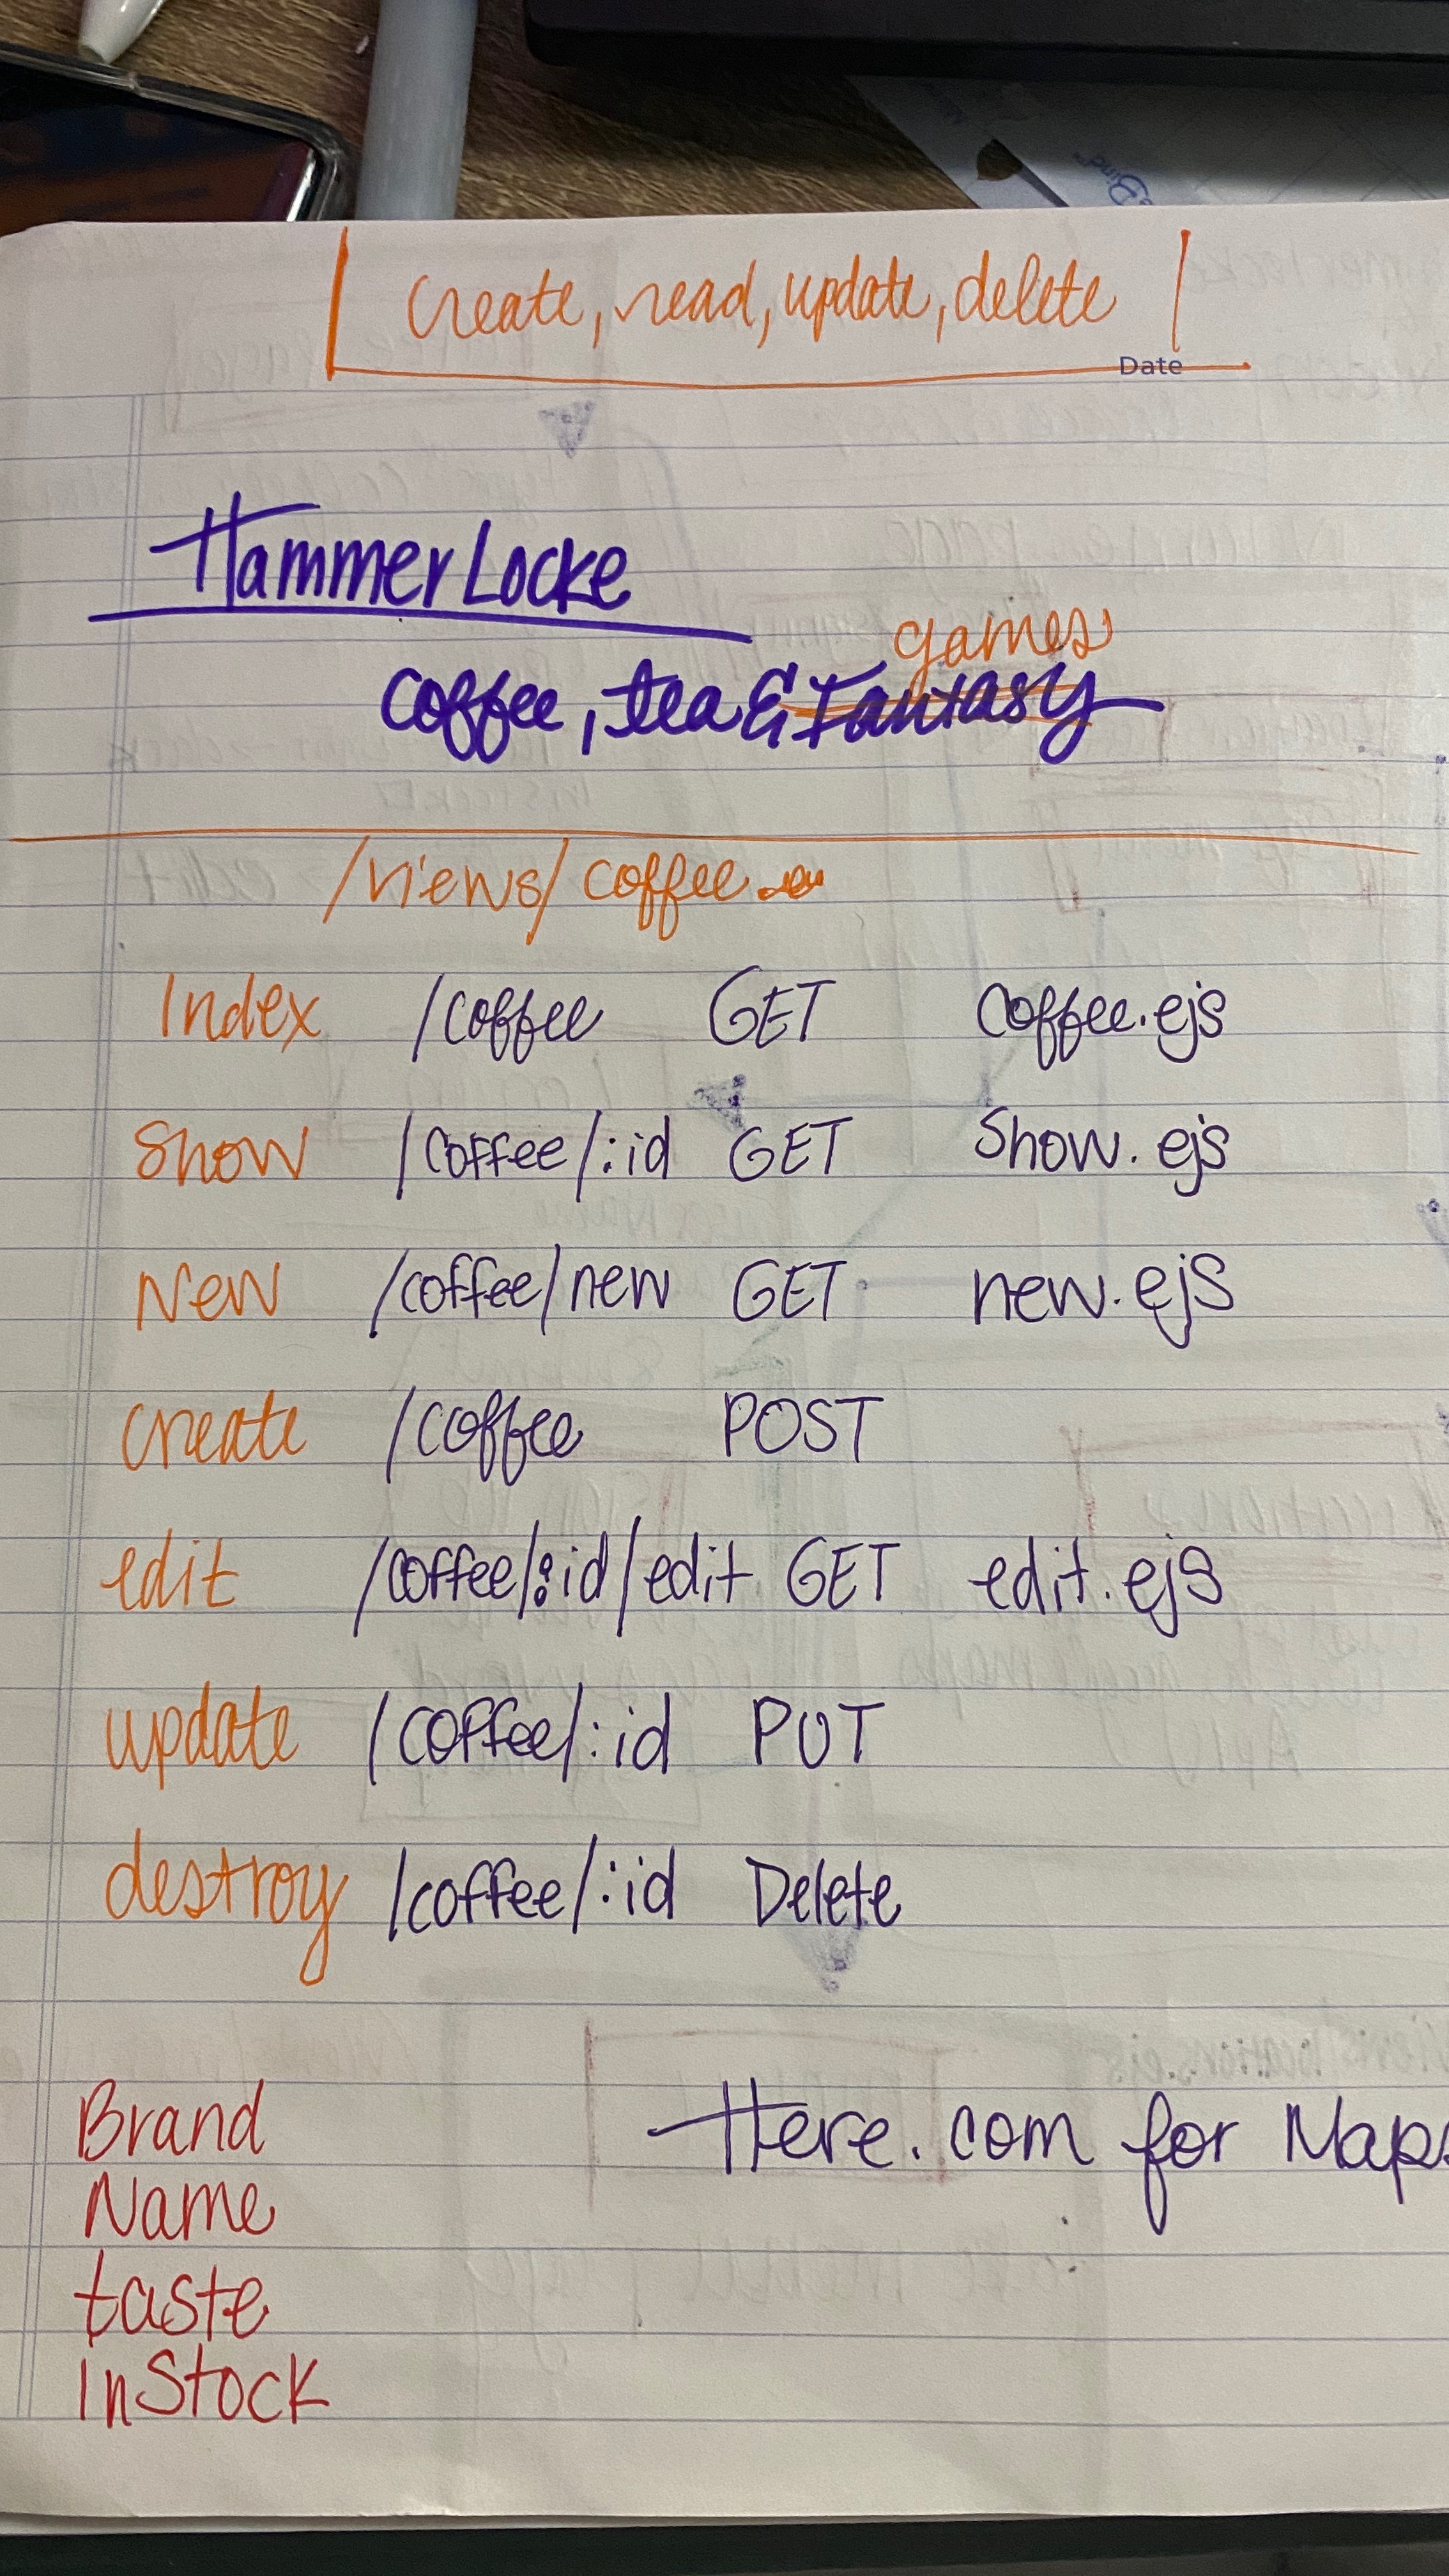 create, read, update, delete
Date
HammerLocke
games
coffee, tea & Fantasy
/views/coffee
Index /coffee GET coffee.ejs
Show /coffee/:id GET Show.ejs
New /coffee/new GET new.ejs
create /coffee POST
edit /coffee/:id/edit GET edit.ejs
update /coffee/:id PUT
destroy /coffee/:id Delete
Brand Here.com for Maps
Name
taste
InStock